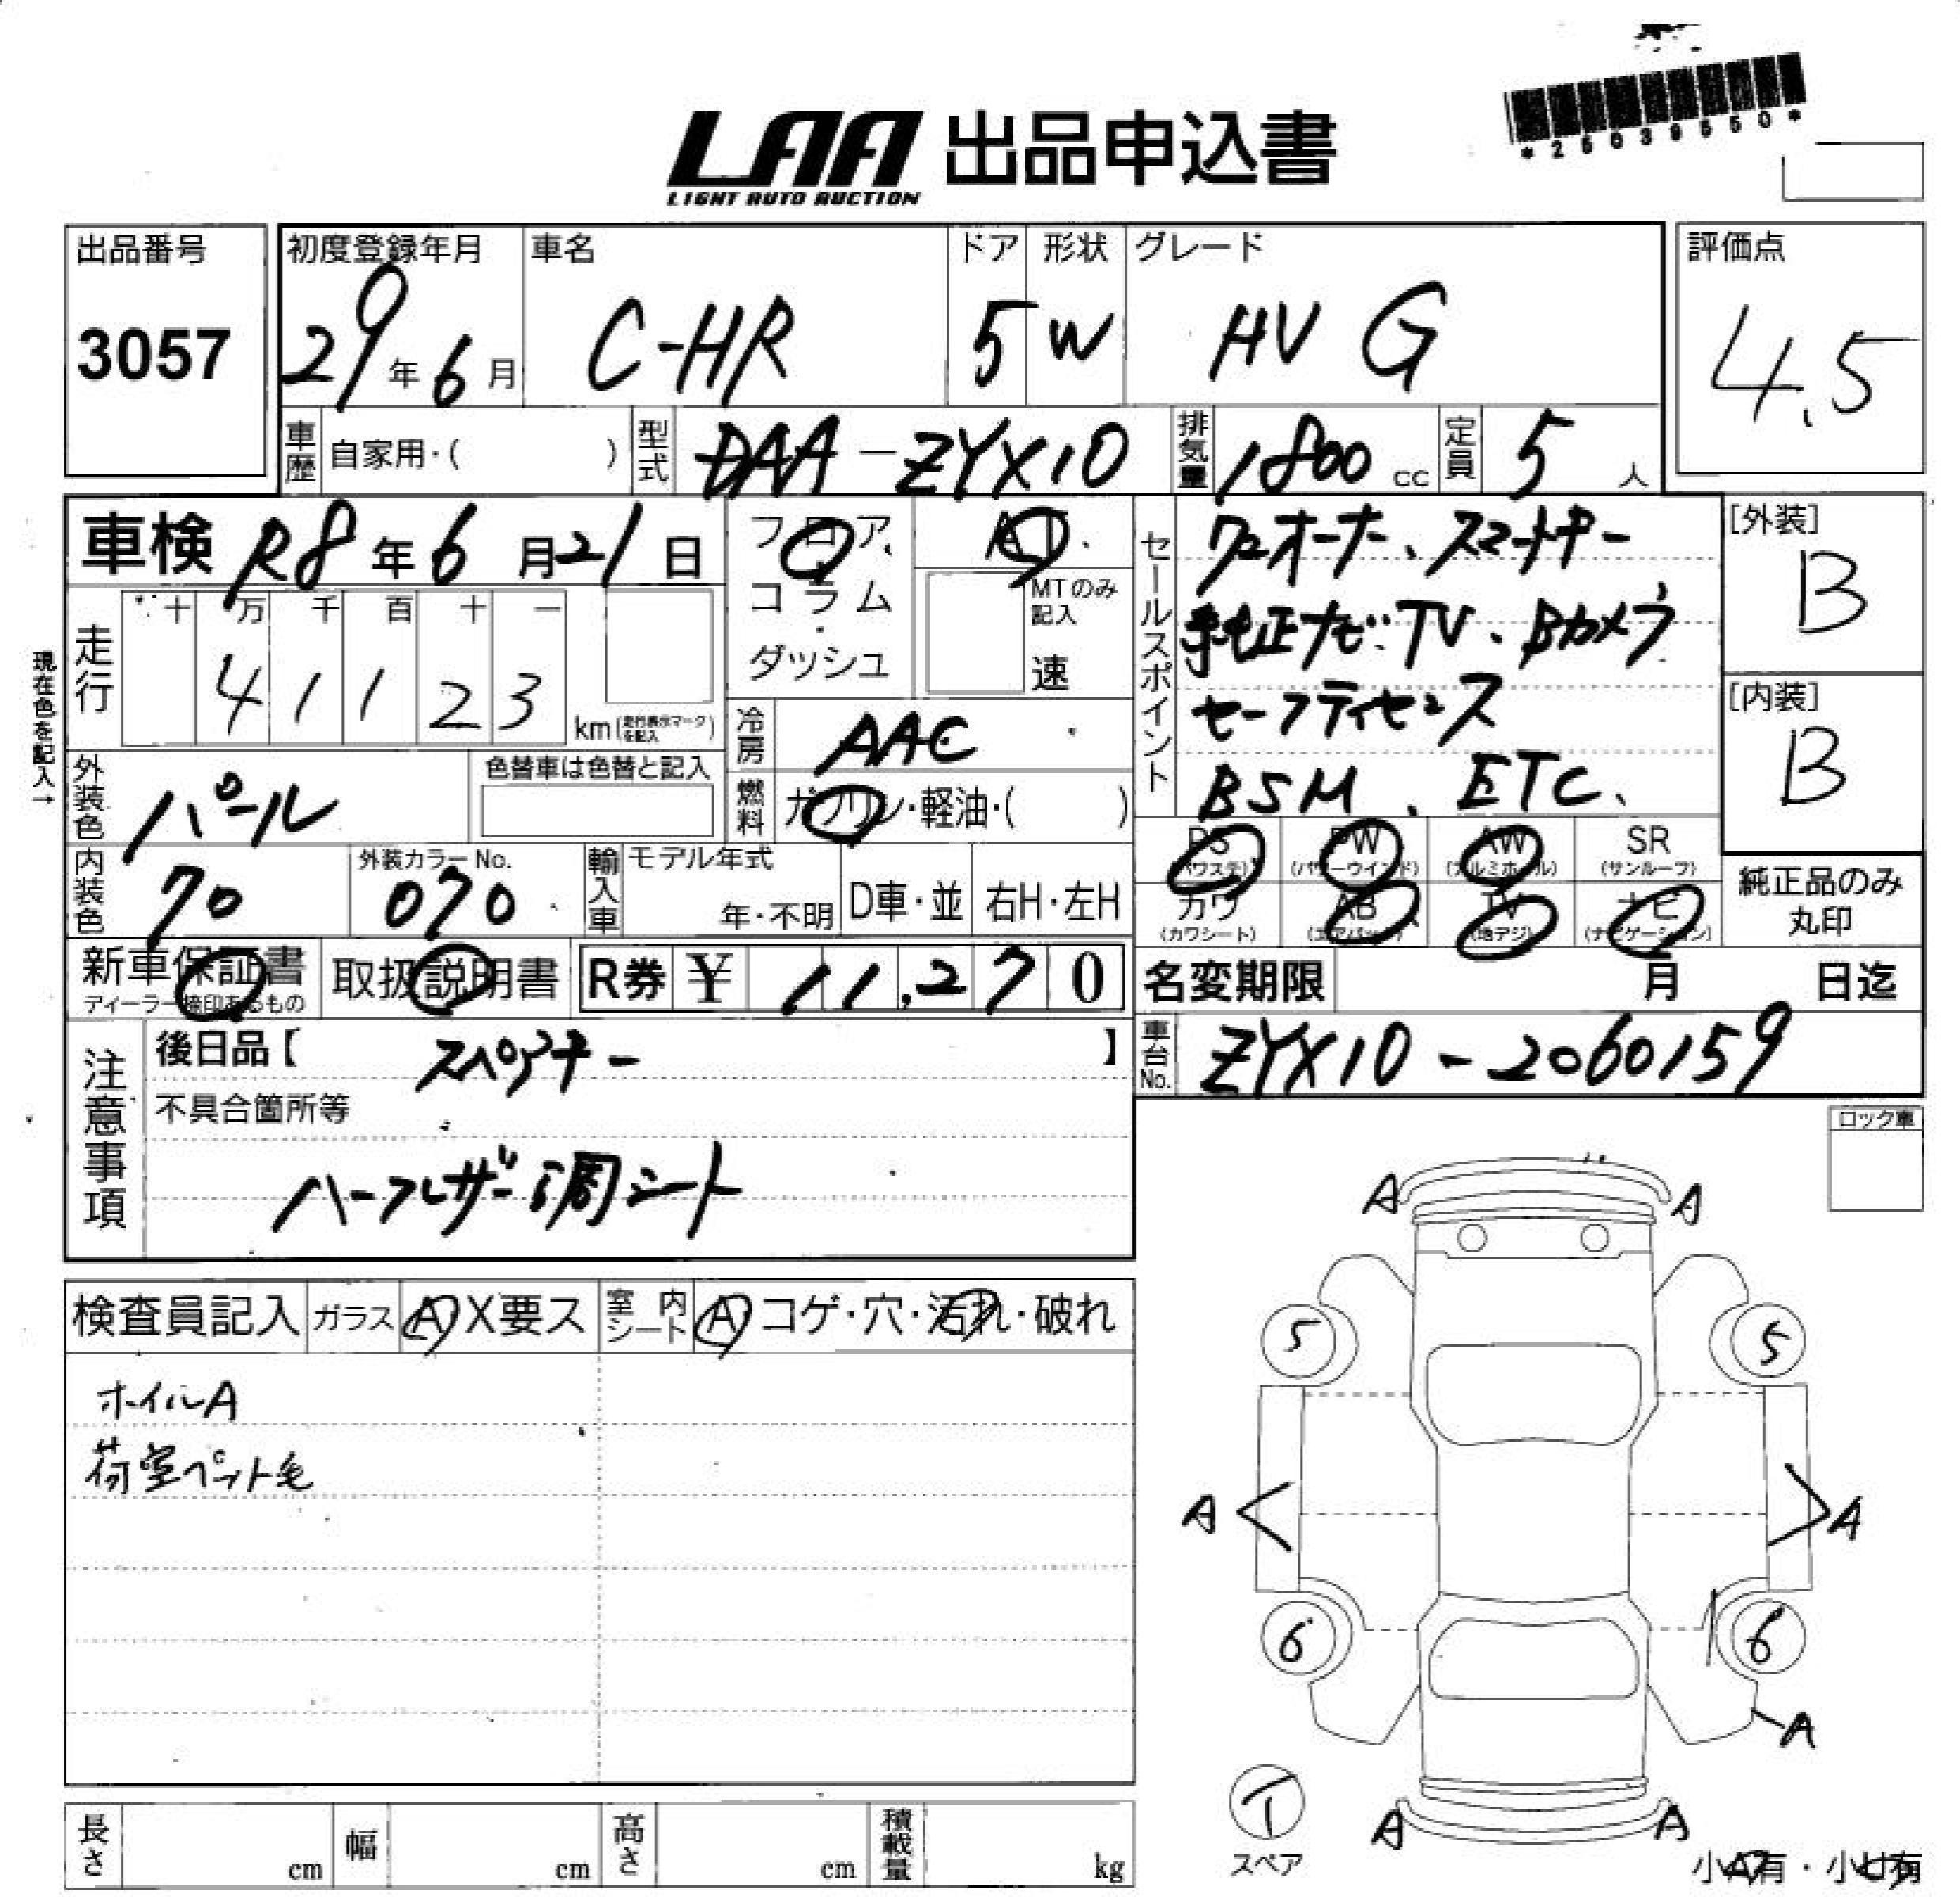 *25039550*
LAA 出品申込書
LIGHT AUTO AUCTION
出品番号
3057
初度登録年月
29年6月
車名
C-HR
ドア
5
形状
W
グレード
HV G
評価点
4.5
車歴 自家用・( )
型式 DAA-ZYX10
排気量 1800 cc
定員 5 人
車検 R8年6月21日
フロア
コラム
ダッシュ
AT
MTのみ記入
速
セールスポイント
ワンオーナー、スマートキー
純正ナビ・TV、Bカメラ
セーフティセンス
BSM、ETC、
[外装]
B
[内装]
B
現在色を記入→
走行
十 万 千 百 十 一
4 1 1 2 3
km(走行表示マークを記入)
冷房 AAC
燃料 ガソリン・軽油・( )
外装色 パール
色替車は色替と記入
内装色 70
外装カラーNo.
070
輸入車
モデル年式
年・不明
D車・並
右H・左H
PS (パワステ)
PW (パワーウインド)
AW (アルミホイル)
SR (サンルーフ)
カワ (カワシート)
AB (エアバック)
TV (地デジ)
ナビ (ナビゲーション)
純正品のみ
丸印
新車保証書
ディーラー捺印あるもの
取扱説明書
R券 ¥ 11,270
名変期限 月 日迄
車台No. ZYX10-2060159
注意事項
後日品【 スペアキー 】
不具合箇所等
ハーフレザー調シート
ロック車
検査員記入
ガラス A X要ス
室内シート A コゲ・穴・汚れ・破れ
ホイルA
荷室ペット毛
A A
5 5
A A
6 6
A
T
スペア
A A
小A有・小U有
長さ cm
幅 cm
高さ cm
積載量 kg